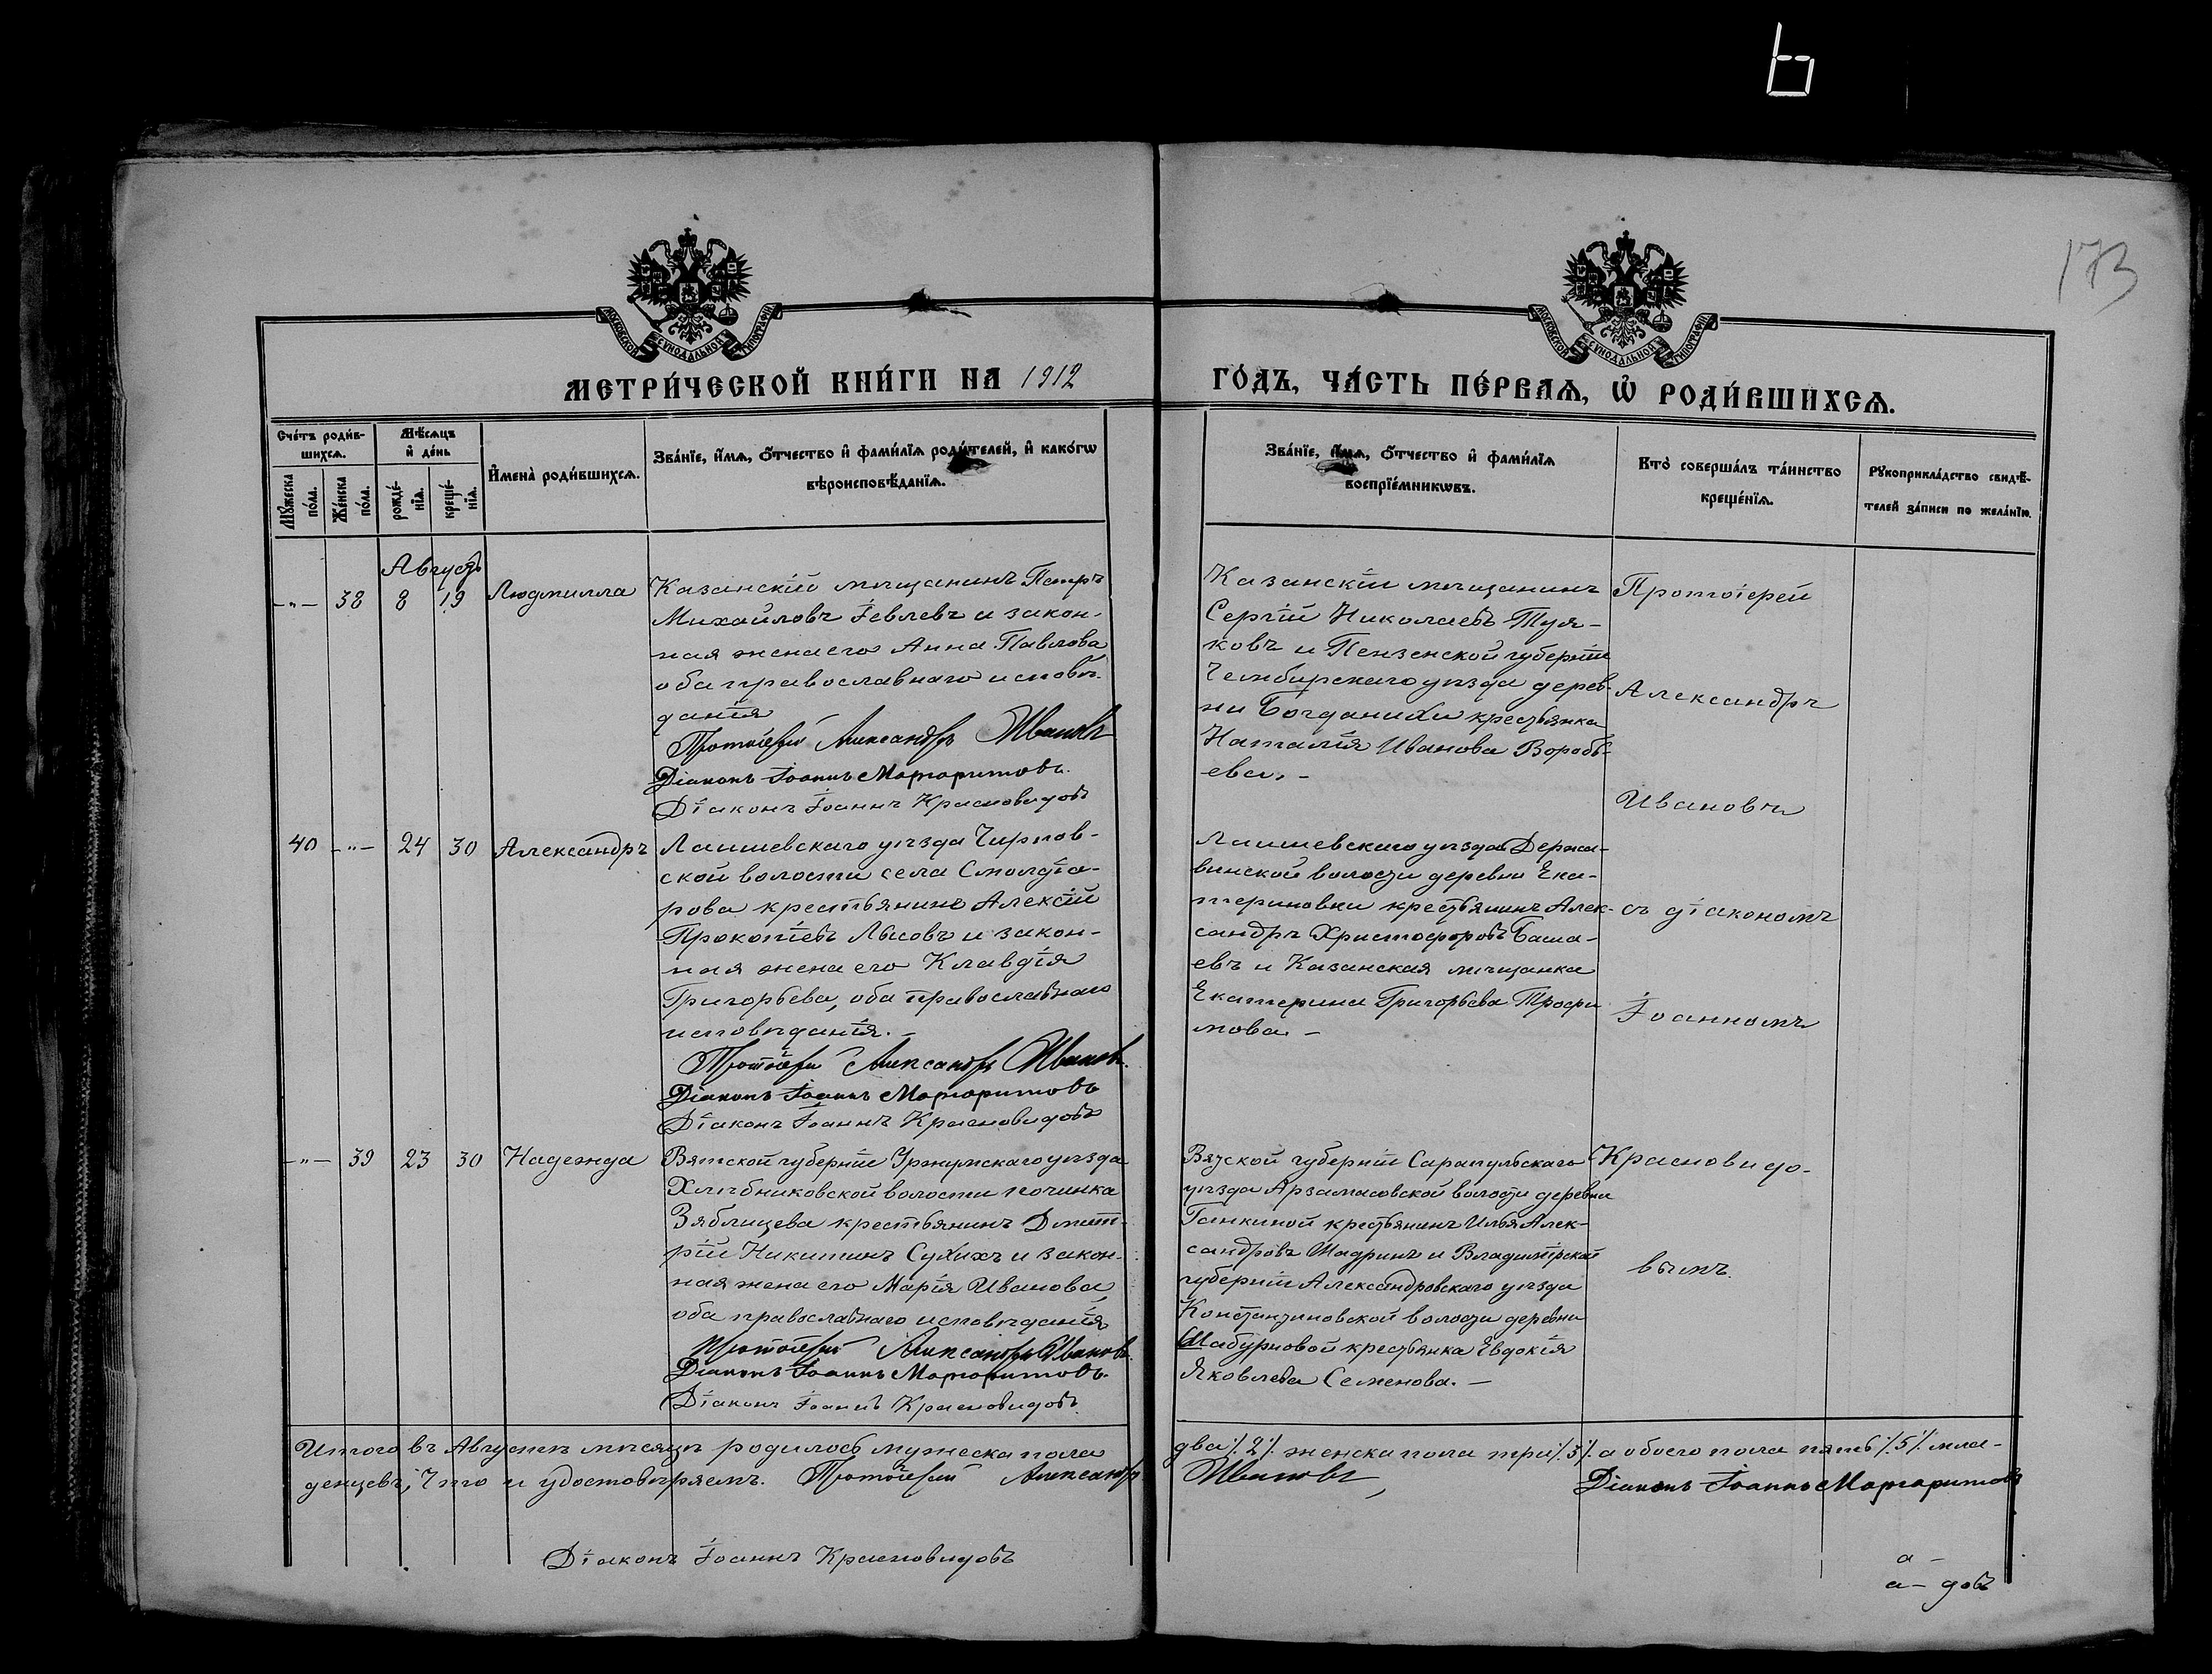 173
МОСКОВСКОЙ СѴНОДАЛЬНОЙ ТИПОГРАФІИ
МОСКОВСКОЙ СѴНОДАЛЬНОЙ ТИПОГРАФІИ
МЕТРИ́ЧЕСКОЙ КНИ́ГИ НА 1912
ГО́ДЪ, ЧА́СТЬ ПЕ́РВАѦ, Ѡ҆ РОДИ́ВШИХСѦ.
Сче́тъ роди́в-
шихсѧ.
Мꙋ́жеска по́ла.
Же́нска по́ла.
Мѣ́сѧцъ
и҆ де́нь
рожде́-
нїѧ.
креще́-
нїѧ.
И҆мена̀ роди́вшихсѧ.
Зва́нїе, и҆́мѧ, ѻ҆́тчество и҆ фами́лїѧ роди́телей, и҆ како́гѡ
вѣроисповѣ́данїѧ.
Зва́нїе, и҆́мѧ, ѻ҆́тчество и҆ фами́лїѧ
воспрїе́мникѡвъ.
Кто̀ соверша́лъ та́инство
креще́нїѧ.
Рꙋкоприкла́дство свидѣ́-
телей за́писи по жела́нїю.
Августъ
-"- 38 8 19 Людмилла
Казанскій мѣщанинъ Петръ
Михайловъ Іевлевъ и закон-
ная жена его Анна Павлова
оба православнаго исповѣ-
данія
Протоіерей Александръ Ивановъ
Діаконъ Іоаннъ Маргаритовъ.
Діаконъ Іоаннъ Красновидовъ
Казанскій мѣщанинъ
Сергій Николаевъ Туя-
ковъ и Пензенской губерніи
Чембарскаго уѣзда дерев-
ни Богданихи крестьянка
Наталія Иванова Воробь-
ева. -
Протоіерей
Александръ
Ивановъ
40 -"- 24 30 Александръ
Лаишевскаго уѣзда Чирпов-
ской волости села Смолдія-
рова крестьянинъ Алексій
Прокопіевъ Лысовъ и закон-
ная жена его Клавдія
Григорьева, оба православнаго
исповѣданія. -
Протоіерей Александръ Ивановъ.
Діаконъ Іоаннъ Маргаритовъ
Діаконъ Іоаннъ Красновидовъ
Лаишевскаго уѣзда Держа-
винской волости деревни Ека-
териновки крестьянинъ Алек-
сандръ Христофоровъ Баша-
евъ и Казанская мѣщанка
Екатерина Григорьева Трофи
мова. -
съ діакономъ
Іоанномъ
-"- 39 23 30 Надежда
Вятской губерніи Уржумскаго уѣзда
Хлѣбниковской волости починка
Зяблицева крестьянинъ Дмит-
рій Никитинъ Сухихъ и закон-
ная жена его Марія Иванова,
оба православнаго исповѣданія
Протоіерей Александръ Ивановъ.
Діаконъ Іоаннъ Маргаритовъ.
Діаконъ Іоаннъ Красновидовъ.
Вятской губерніи Сарапульскаго
уѣзда Арзамасовской волости деревни
Ганкиной крестьянинъ Илья Алек-
сандровъ Шадринъ и Владимірской
губерніи Александровскаго уѣзда
Константиновской волости деревни
Шабурновой крестьянка Евдокія
Яковлева Семенова. -
Красновидо-
вымъ.
Итого въ Августѣ мѣсяцѣ родилось мужеска пола
два ٪ 2 ٪ женска пола три ٪ 3 ٪ а обоего пола пять ٪ 5 ٪ мла-
денцевъ; Что и удостовѣряемъ. Протоіерей Александръ
Ивановъ, Діаконъ Іоаннъ Маргаритовъ
Діаконъ Іоаннъ Красновидовъ
а -
а - довъ